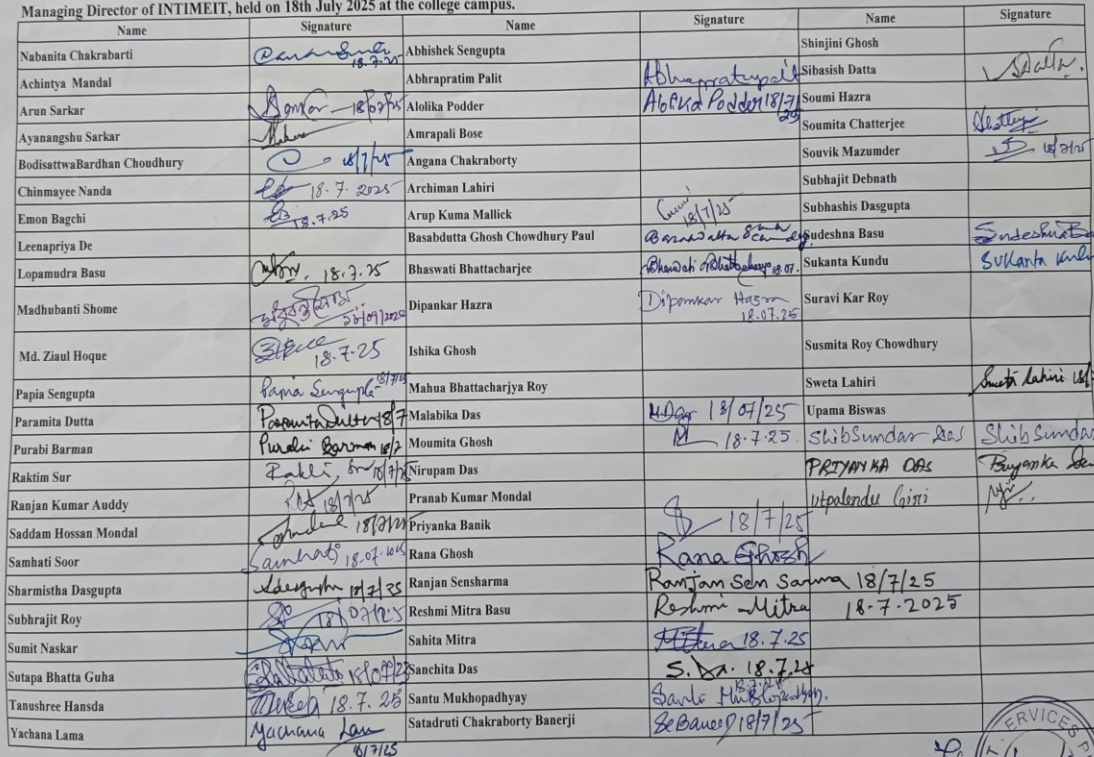 Managing Director of INTIMEIT, held on 18th July 2025 at the college campus.
Name Signature Name Signature Name Signature
Nabanita Chakrabarti 18.7.25 Abhishek Sengupta Shinjini Ghosh
Achintya Mandal Abhrapratim Palit Abhrapratim Palit Sibasish Datta SDatta.
Arun Sarkar 18/07/25 Alolika Podder Alolika Podder 18/7/25 Soumi Hazra
Ayanangshu Sarkar Amrapali Bose Soumita Chatterjee
BodisattwaBardhan Choudhury 18/7/25 Angana Chakraborty Souvik Mazumder 18/7/25
Chinmayee Nanda 18.7.2025 Archiman Lahiri Subhajit Debnath
Emon Bagchi 18.7.25 Arup Kuma Mallick 18/7/25 Subhashis Dasgupta
Leenapriya De Basabdutta Ghosh Chowdhury Paul Sudeshna Basu Sudeshna B
Lopamudra Basu 18.7.25 Bhaswati Bhattacharjee Bhaswati Bhattacharjee 18.07. Sukanta Kundu Sukanta Kundu
Madhubanti Shome Dipankar Hazra Dipankar Hazra 18.07.25 Suravi Kar Roy
Md. Ziaul Hoque 18.7.25 Ishika Ghosh Susmita Roy Chowdhury
Papia Sengupta Papia Sengupta 18/7/25 Mahua Bhattacharjya Roy Sweta Lahiri Sweta Lahiri 18/7
Paramita Dutta Paramita Dutta 18/7 Malabika Das M.Das 18/07/25 Upama Biswas
Purabi Barman Purabi Barman 18/7 Moumita Ghosh M 18.7.25 Shib Sundar Das Shib Sundar
Raktim Sur 18/7/25 Nirupam Das PRIYANKA DAS Priyanka Das
Ranjan Kumar Auddy 18/7/25 Pranab Kumar Mondal Utpalendu Giri
Saddam Hossan Mondal 18/7/25 Priyanka Banik 18/7/25
Samhati Soor Samhati 18.07.2025 Rana Ghosh Rana Ghosh
Sharmistha Dasgupta SDasgupta 18/7/25 Ranjan Sensharma Ranjan Sen Sarma 18/7/25
Subhrajit Roy 18/07/25 Reshmi Mitra Basu Reshmi Mitra 18-7-2025
Sumit Naskar Sahita Mitra Mitra 18.7.25
Sutapa Bhatta Guha Sanchita Das S. Das. 18.7.25
Tanushree Hansda 18.7.25 Santu Mukhopadhyay Santu Mukhopadhyay.
Yachana Lama Yachana Lama 18/7/25 Satadruti Chakraborty Banerji 18/7/25
SERVICES P